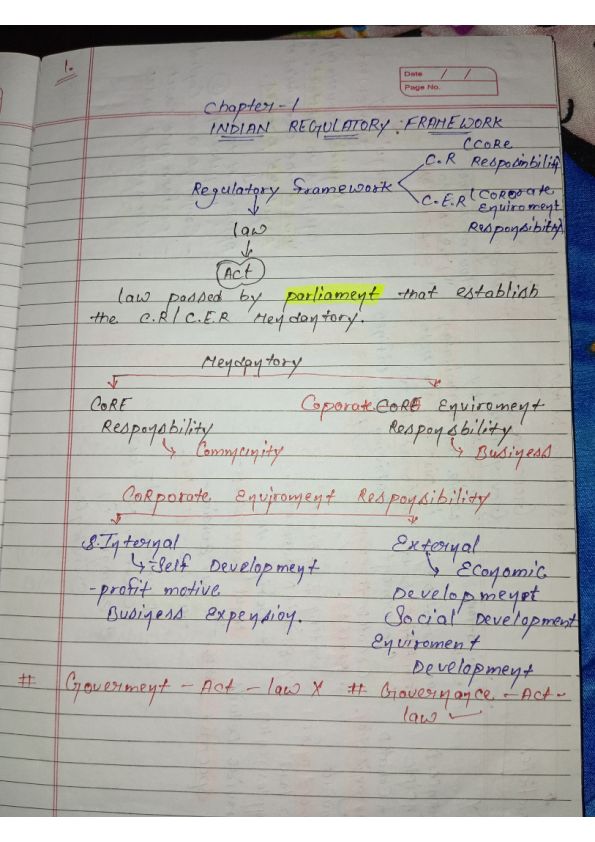 1.
Date / /
Page No.
Chapter-1
INDIAN REGULATORY FRAMEWORK
CCORE
C.R Responsibility
Regulatory framework
C.E.R (Corporate
Enviroment
Responsibility)
law
Act
law passed by parliament that establish
the C.R/C.E.R Mendantory.
Mendantory
CORE Coporate CORE Enviroment
Responsbility Responsbility
Community Business
Corporate Enviroment Responsibility
Internal External
Self Development Economic
-profit motive Development
Business Expension. Social Development
Enviroment
Development
# Goverment - Act - law X # Governance - Act -
law ✓